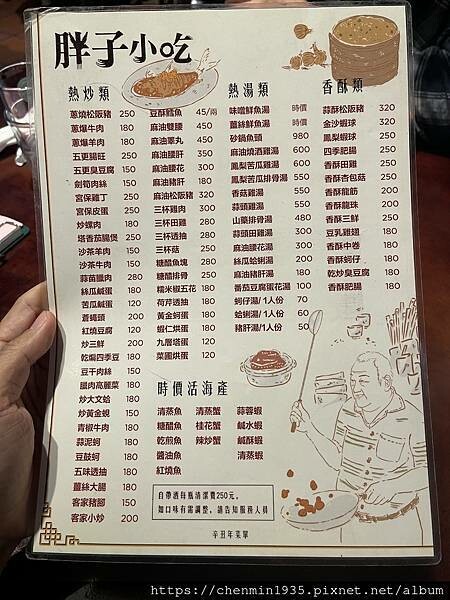 胖子小吃
熱炒類
蔥燒松阪豬 250
蔥爆牛肉 180
蔥爆羊肉 180
五更腸旺 250
五更臭豆腐 150
劍筍肉絲 150
宮保雞丁 250
宮保皮蛋 250
炒螺肉 180
塔香茄腸煲 250
沙茶羊肉 150
沙茶牛肉 150
蒜苗臘肉 250
絲瓜鹹蛋 180
苦瓜鹹蛋 120
蒼蠅頭 200
紅燒豆腐 120
炒三鮮 200
乾煸四季豆 180
豆干肉絲 150
臘肉高麗菜 180
炒大文蛤 180
炒黃金蜆 150
青椒牛肉 180
蒜泥蚵 180
豆鼓蚵 180
五味透抽 180
薑絲大腸 180
客家豬腳 150
客家小炒 200
豆酥鱈魚 45/兩
麻油雙腰 450
麻油睪丸 450
麻油腰肝 350
麻油腰花 300
麻油豬肝 180
麻油松阪豬 320
三杯雞肉 300
三杯田雞 280
三杯透抽 280
三杯菇 250
糖醋魚塊 280
糖醋排骨 250
糯米椒五花 180
荷芹透抽 180
黃金蚵蛋 180
蝦仁烘蛋 180
九層塔蛋 120
菜圃烘蛋 120
熱湯類
味噌鮮魚湯 時價
薑絲鮮魚湯 時價
砂鍋魚頭 980
麻油燒酒雞湯 600
鳳梨苦瓜雞湯 600
鳳梨苦瓜排骨湯 550
香菇雞湯 550
蒜頭雞湯 550
山藥排骨湯 480
蒜頭田雞湯 300
麻油腰花湯 300
絲瓜蛤蜊湯 200
麻油豬肝湯 180
番茄豆腐蛋花湯 100
蚵仔湯/1人份 70
蛤蜊湯/1人份 60
豬肝湯/1人份 50
香酥類
蒜酥松阪豬 320
金沙蝦球 320
鳳梨蝦球 250
四季肥腸 250
香酥田雞 250
香酥杏包菇 250
香酥龍筋 200
香酥龍珠 200
香酥三鮮 250
豆乳雞翅 180
香酥中卷 180
香酥蚵仔 180
乾炒臭豆腐 180
香酥肥腸 180
時價活海產
清蒸魚 清蒸蟹 蒜蓉蝦
糖醋魚 桂花蟹 鹹水蝦
乾煎魚 辣炒蟹 鹹酥蝦
醬油魚 清蒸蝦
紅燒魚
自帶酒每瓶清潔費250元。
如口味有需調整，請告知服務人員
辛丑年菜單
https://chenmin1935.pixnet.net/album